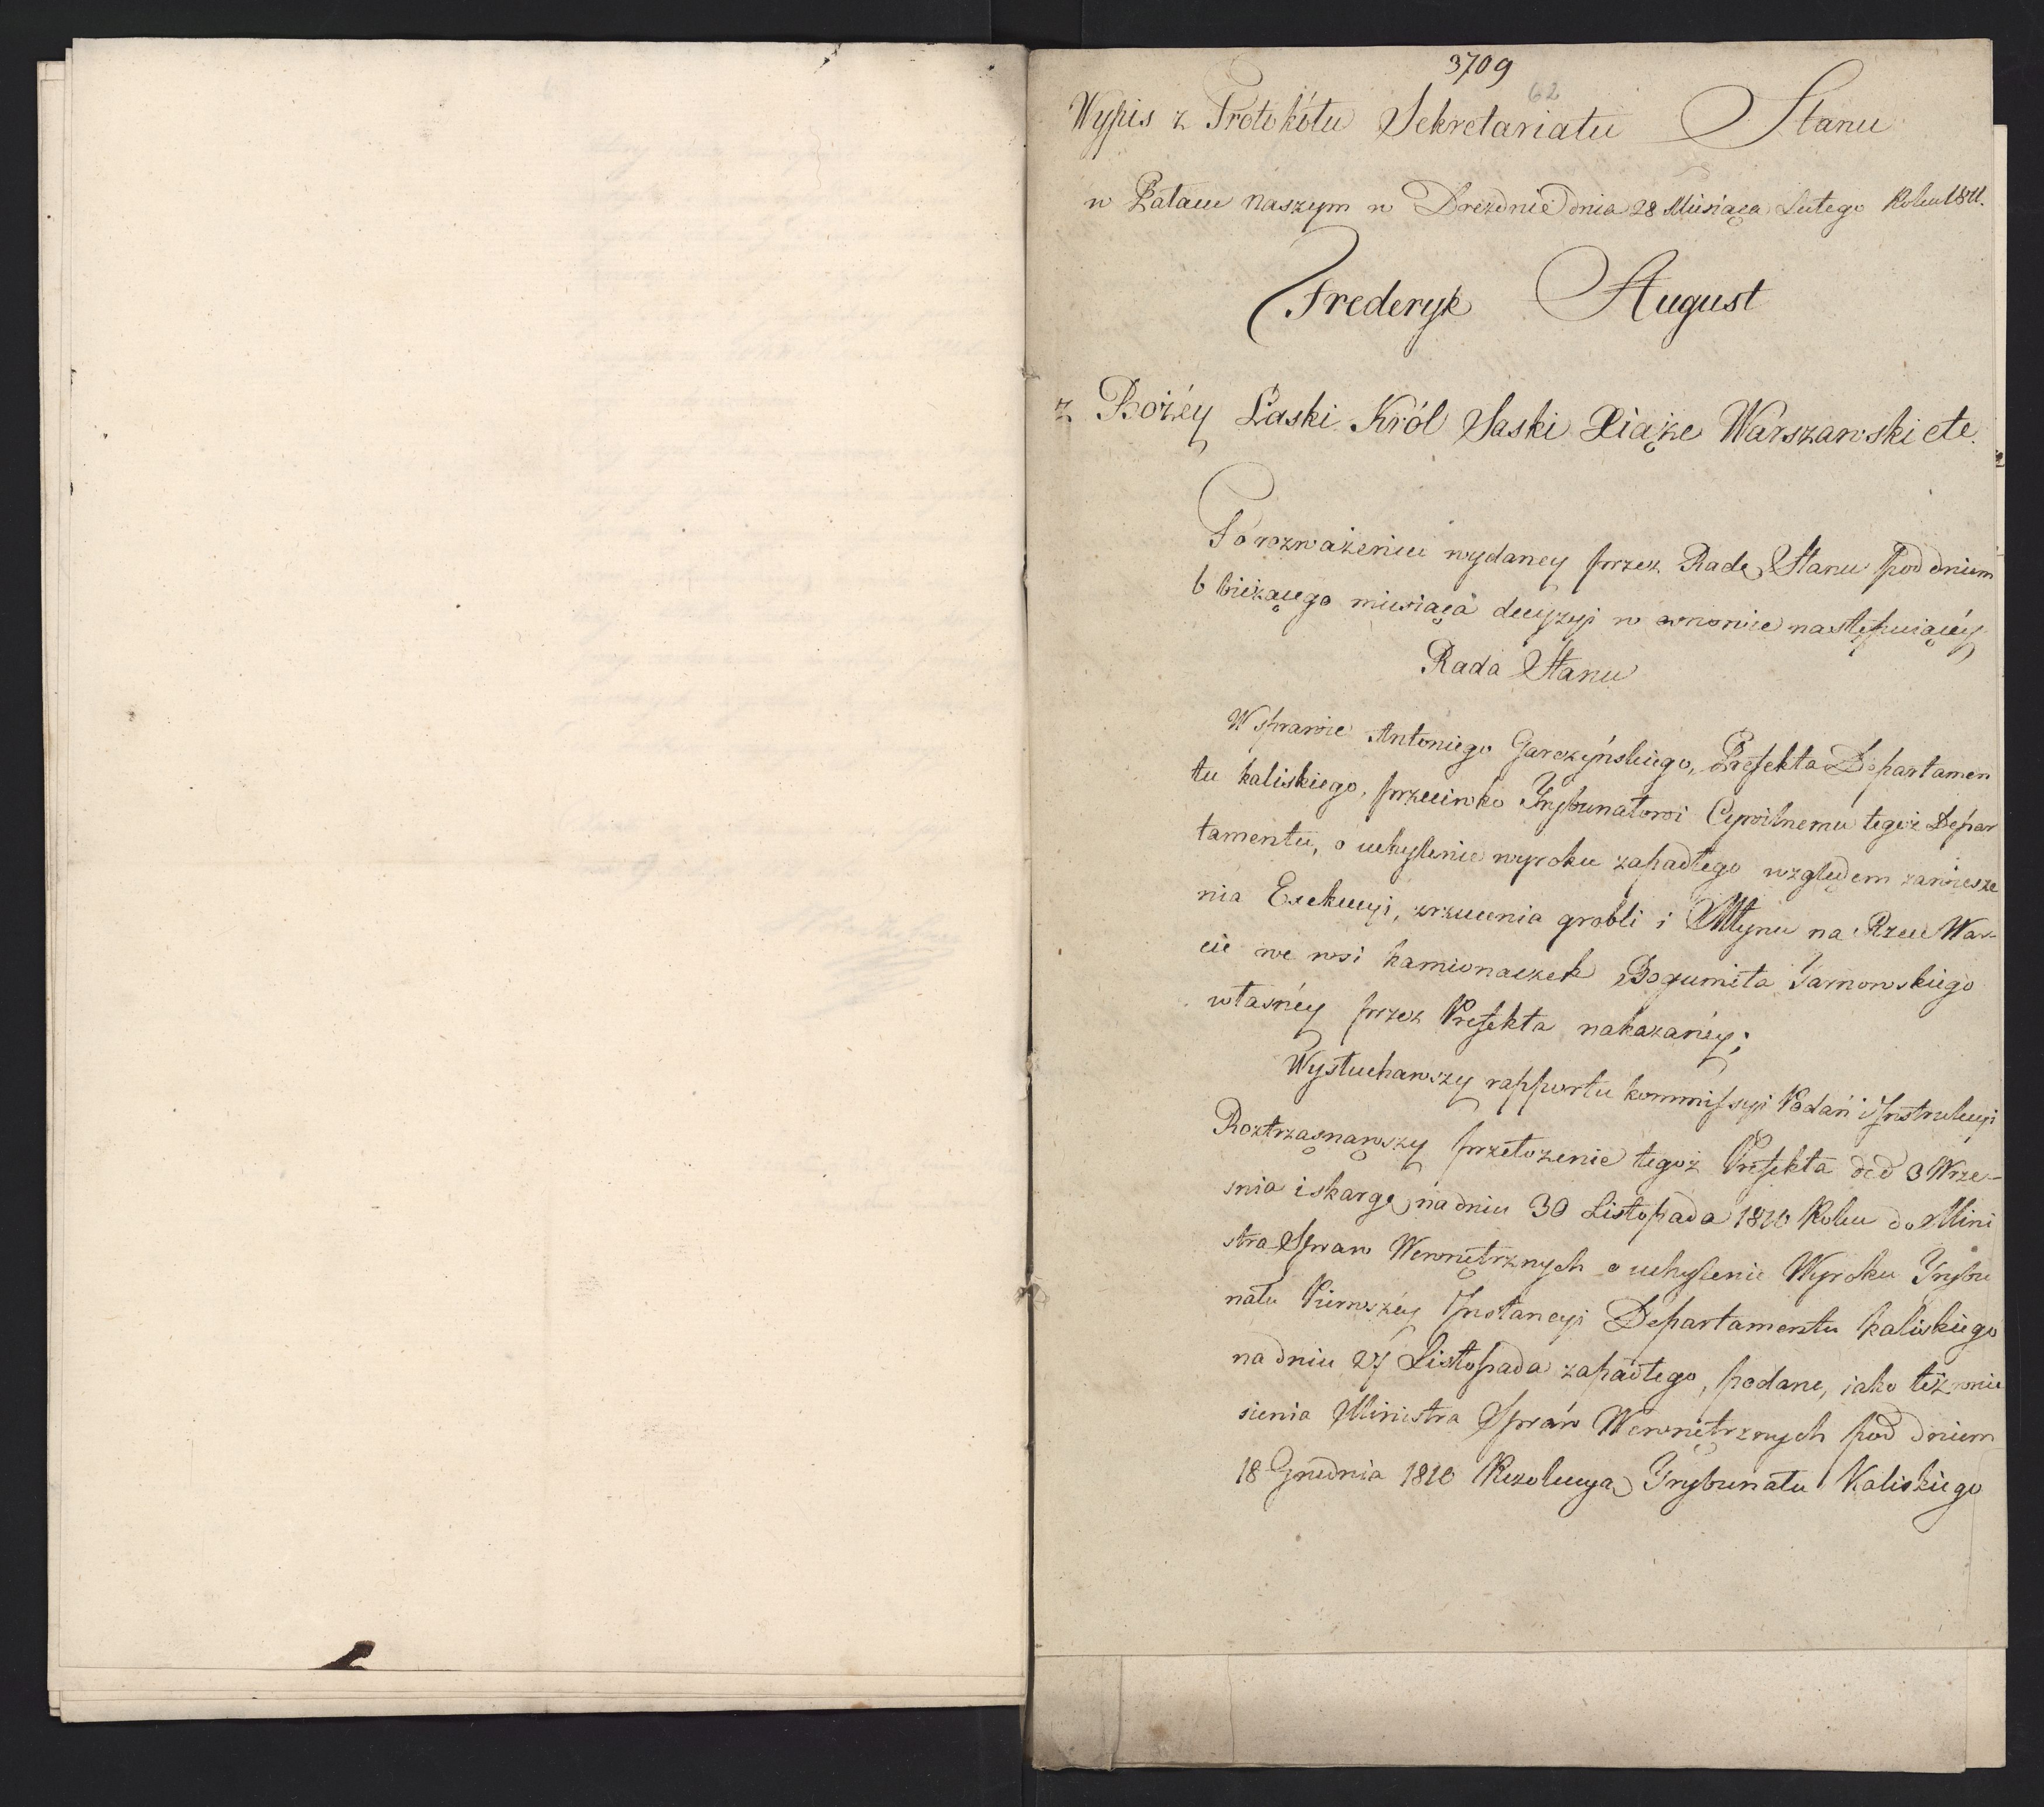 3709
62
Wypis z Protokółu Sekretariatu Stanu
w Pałacu naszym w Dreznie dnia 28 Miesiąca Lutego Roku 1811.
Frederyk August
z Bożéy Łaski Król Saski Xiąże Warszawski etc.
Po rozważeniu wydaney przez Radę Stanu pod dniem
6 bieżącego miesiąca decyzyi w osnowie następuiącéy
Rada Stanu
W sprawie Antoniego Garczyńskiego, Prefekta Departamen
tu kaliskiego, przeciwko Trybunałowi Cywilnemu tegoż Depar
tamentu, o uchylenie wyroku zapadłego względem zawiesze
nia Exekucyi, zrzucenia grobli i Młynu na Rzece War-
cie we wsi kamionaczek Bogumiła Tarnowskiego
własnéy przez Prefekta nakazanéy;
Wysłuchawszy rapportu kommissyi Podań i Instrukcyi
Roztrząsnąwszy przełozenie tegoż Prefekta ded 3 Wrze-
snia i skargę na dniu 30 Listopada 1810 Roku do Mini
stra Spraw Wewnętrznych o uchylenie Wyroku Trybu
nału Pierwszéy Instancyi Departamentu kaliskiego
na dniu 27 Listopada zapadłego, podane, iako też wnie
sienia Ministra Spraw Wewnętrznych pod dniem
18 Grudnia 1810 Rezolucyą Trybunału Kaliskiego